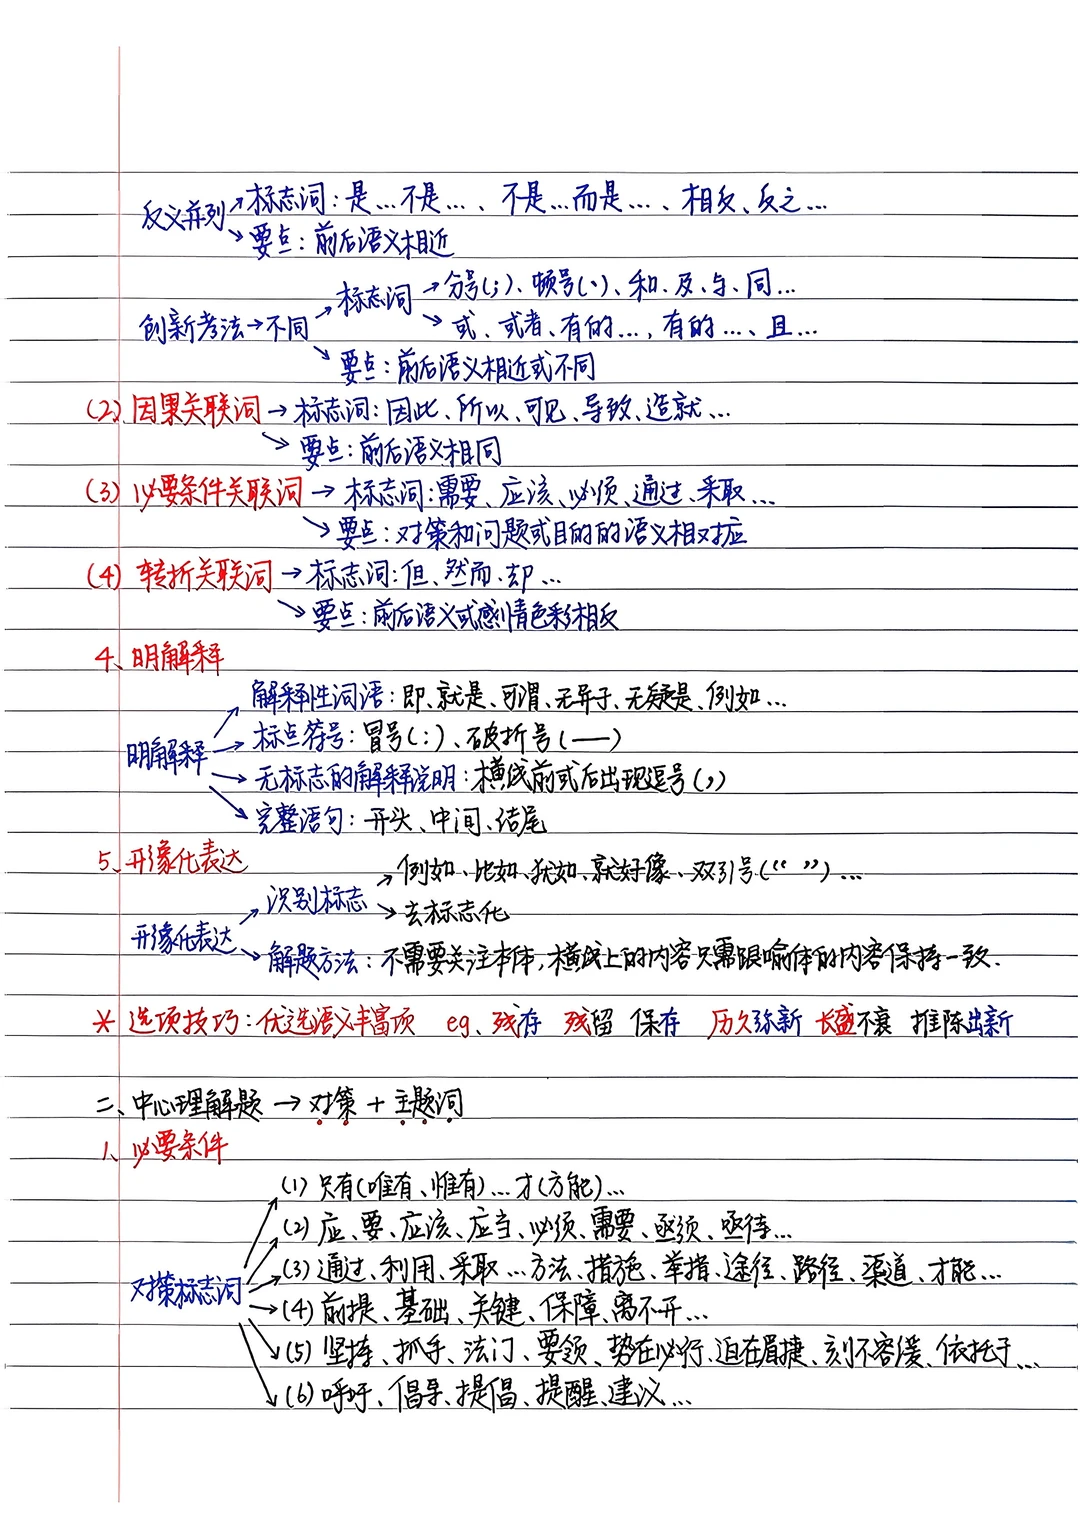 反义并列→标志词：是…不是…、不是…而是…、相反、反之…
→要点：前后语义相近
创新考法→不同→标志词→分号(；)、顿号(、)、和、及、与、同…
→或、或者、有的…，有的…、且…
→要点：前后语义相近或不同
(2) 因果关联词→标志词：因此、所以、可见、导致、造就…
→要点：前后语义相同
(3) 必要条件关联词→标志词：需要、应该、必须、通过、采取…
→要点：对策和问题或目的的语义相对应
(4) 转折关联词→标志词：但、然而、却…
→要点：前后语义或感情色彩相反
4、明解释
明解释→解释性词语：即、就是、可谓、无异于、无疑是、例如…
→标点符号：冒号(：)、破折号(——)
→无标志的解释说明：横线前或后出现逗号(，)
→完整语句：开头、中间、结尾
5、形象化表达
形象化表达→识别标志→例如、比如、犹如、就好像、双引号(“ ”)…
→去标志化
→解题方法：不需要关注本体，横线上的内容只需跟喻体的内容保持一致.
* 选项技巧：优选语义丰富项 eg、残存 残留 保存 历久弥新 长盛不衰 推陈出新
二、中心理解题→对策+主题词
1、必要条件
对策标志词→(1) 只有(唯有、惟有)…才(方能)…
→(2) 应、要、应该、应当、必须、需要、亟须、亟待…
→(3) 通过、利用、采取…方法、措施、举措、途径、路径、渠道、才能…
→(4) 前提、基础、关键、保障、离不开…
→(5) 坚持、抓手、法门、要领、势在必行、迫在眉捷、刻不容缓、依托于…
→(6) 呼吁、倡导、提倡、提醒、建议…